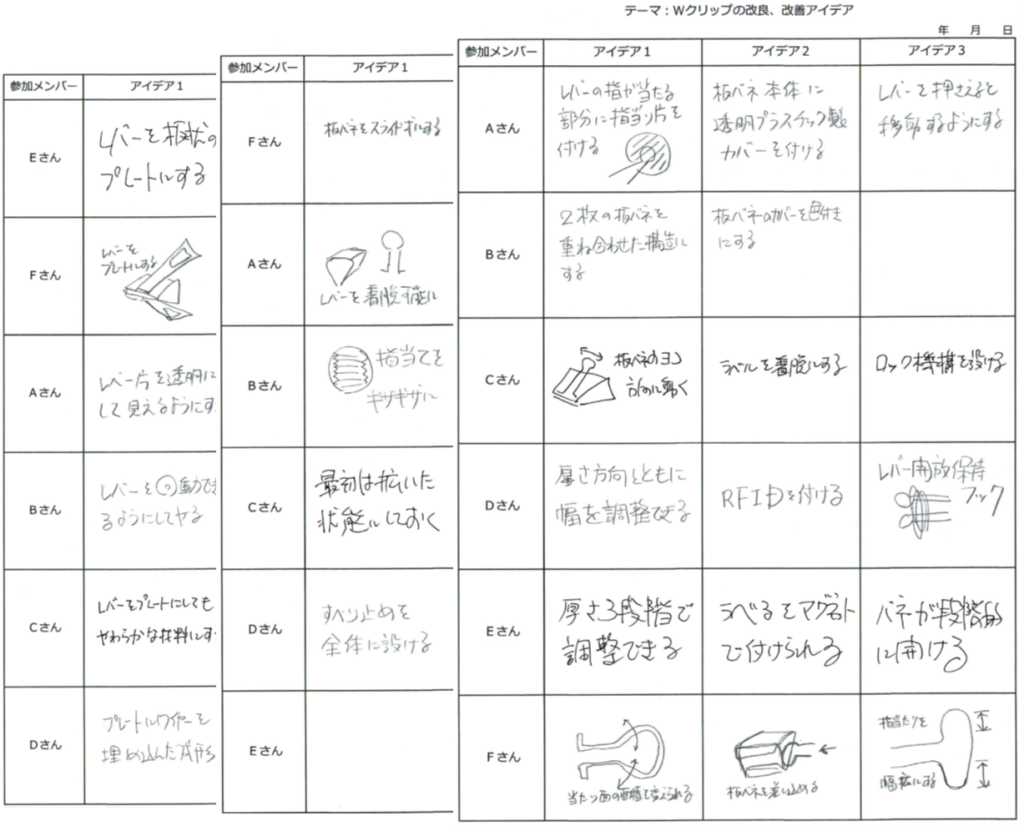 テーマ：Wクリップの改良、改善アイデア
年 月 日
参加メンバー アイデア1
Eさん
レバーを板状の
プレートにする
Fさん
レバーを
プレートにする
Aさん
レバー片を透明に
して見えるようにす
Bさん
レバーを
動でき
るようにしてやる
Cさん
レバーをプレートにしても
やわらかな材料にす
Dさん
プレートにワイヤーを
埋め込んだ
参加メンバー アイデア1
Fさん
板バネをスライド式にする
Aさん
レバーを着脱可能に
Bさん
指当てを
ギザギザに
Cさん
最初は拡いた
状態にしておく
Dさん
すべり止めを
全体に設ける
Eさん
参加メンバー アイデア1 アイデア2 アイデア3
Aさん
レバーの指が当たる
部分に指当り片を
付ける
板バネ本体に
透明プラスチック製
カバーを付ける
レバーを押さえると
移動するようにする
Bさん
2枚の板バネを
重ね合わせた構造に
する
板バネのカバーを色付き
にする
Cさん
板バネのヨコ
方向に動く
ラベルを着脱にする
ロック機構を設ける
Dさん
厚さ方向とともに
幅を調整できる
RFIDを付ける
レバー開放保持
フック
Eさん
厚さ3段階で
調整できる
ラベるをマグネット
で付けられる
バネが段階的
に開ける
Fさん
当たり面の面積を変えられる
板バネを差し込める
指当たりを
幅広にする